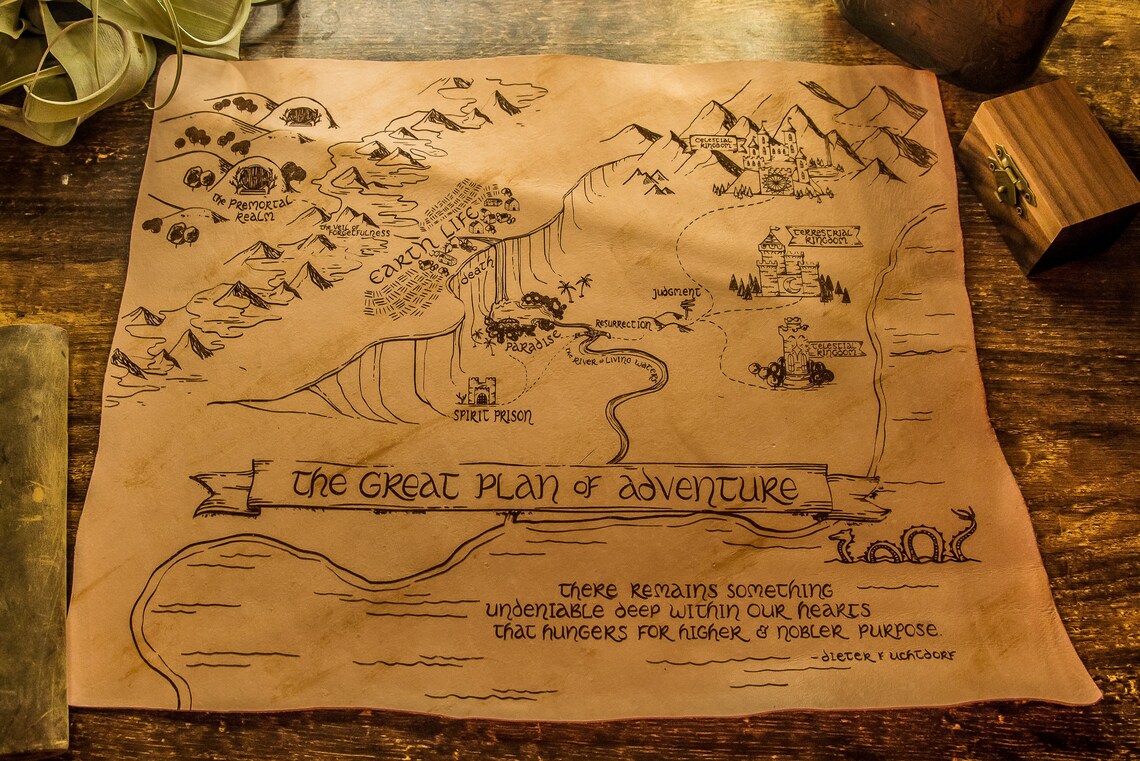 CELESTIAL
KINGDOM
the PREMORTAL
REALM
the VEIL of
FORGETFULNESS
EARTH LIFE
TERRESTRIAL
KINGDOM
death
JUDGMENT
RESURRECTION
PARADISE
the RIVER of LIVING WATERS
CELESTIAL
KINGDOM
SPIRIT PRISON
the GREAT PLAN OF ADVENTURE
there REMAINS SOMETHING
UNDENIABLE DEEP WITHIN OUR HEARTS
that HUNGERS FOR HIGHER & NOBLER PURPOSE.
-DIETER F UCHTDORF